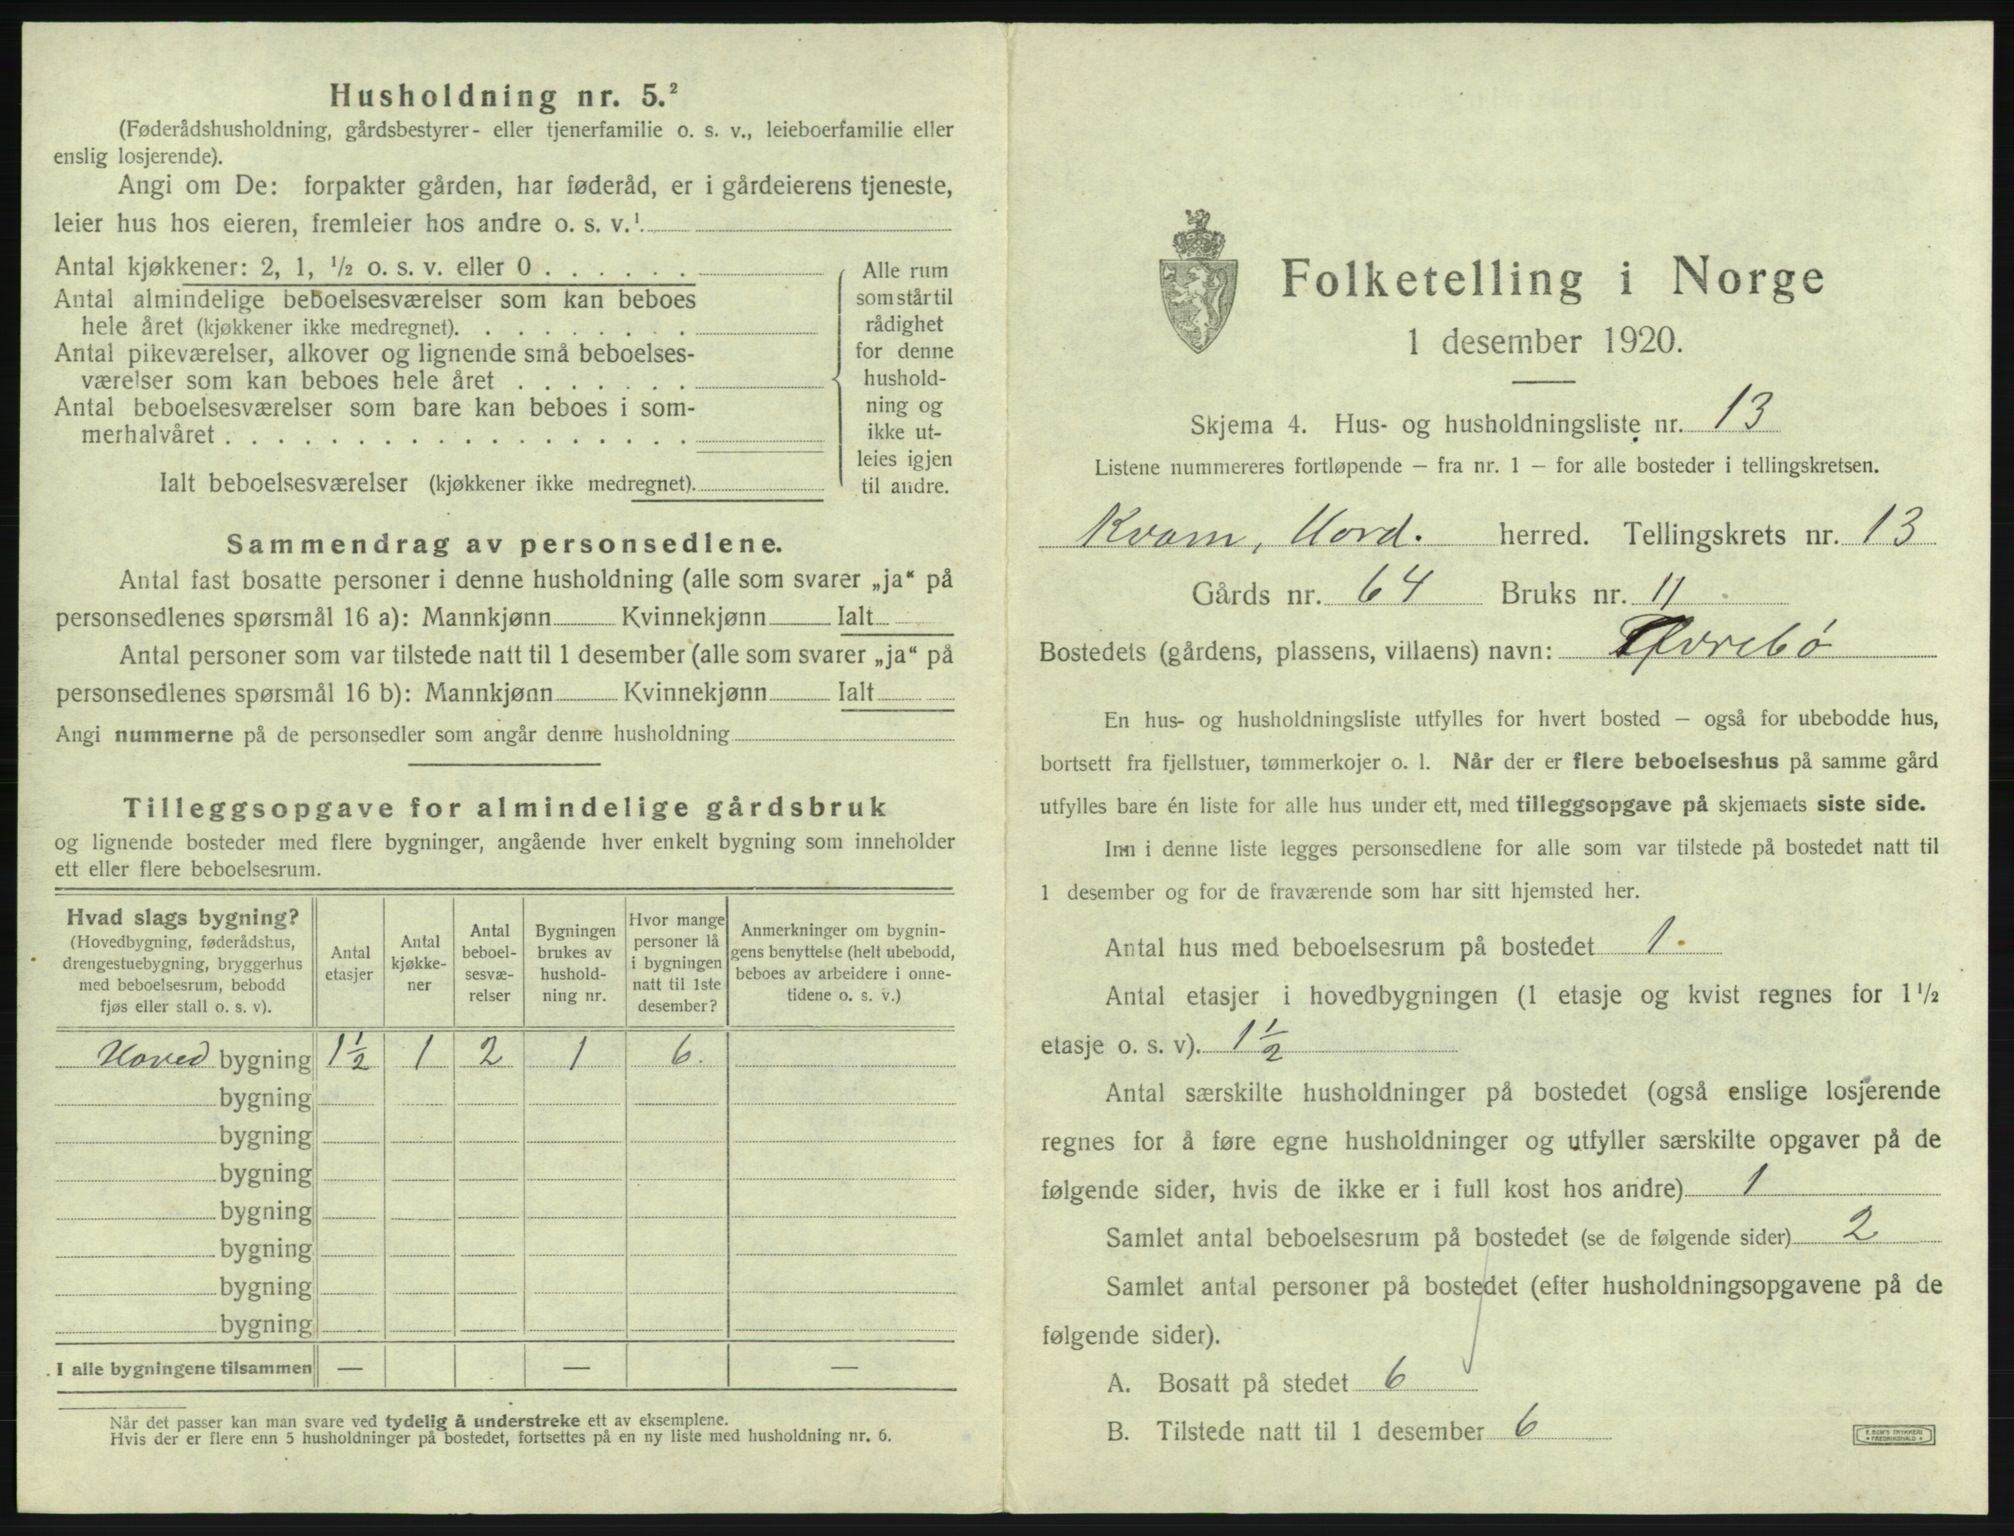 Husholdning nr. 5.²
(Føderådshusholdning, gårdsbestyrer- eller tjenerfamilie o. s. v., leieboerfamilie eller
enslig losjerende).
Angi om De: forpakter gården, har føderåd, er i gårdeierens tjeneste,
leier hus hos eieren, fremleier hos andre o. s. v.¹
Antal kjøkkener: 2, 1, ½ o. s. v. eller 0 . . . . . .
Antal almindelige beboelsesværelser som kan beboes
hele året (kjøkkener ikke medregnet). . . . . . . . .
Antal pikeværelser, alkover og lignende små beboelses-
værelser som kan beboes hele året . . . . . . .
Antal beboelsesværelser som bare kan beboes i som-
merhalvåret . . . . . . . . . . . . . . . . . .
Ialt beboelsesværelser (kjøkkener ikke medregnet).
Alle rum
som står til
rådighet
for denne
hushold-
ning og
ikke ut-
leies igjen
til andre.
Sammendrag av personsedlene.
Antal fast bosatte personer i denne husholdning (alle som svarer „ja“ på
personsedlenes spørsmål 16 a): Mannkjønn Kvinnekjønn Ialt
Antal personer som var tilstede natt til 1 desember (alle som svarer „ja“ på
personsedlenes spørsmål 16 b): Mannkjønn Kvinnekjønn Ialt
Angi nummerne på de personsedler som angår denne husholdning
Tilleggsopgave for almindelige gårdsbruk
og lignende bosteder med flere bygninger, angående hver enkelt bygning som inneholder
ett eller flere beboelsesrum.
Hvad slags bygning?
(Hovedbygning, føderådshus,
drengestuebygning, bryggerhus
med beboelsesrum, bebodd
fjøs eller stall o. s. v).
Antal
etasjer
Antal
kjøkke-
ner
Antal
beboel-
sesvæ-
relser
Bygningen
brukes av
hushold-
ning nr.
Hvor mange
personer lå
i bygningen
natt til 1ste
desember?
Anmerkninger om bygnin-
gens benyttelse (helt ubebodd,
beboes av arbeidere i onne-
tidene o. s. v.)
Hoved bygning 1½ 1 2 1 6.
bygning
bygning
bygning
bygning
bygning
bygning
bygning
I alle bygningene tilsammen — — —
Når det passer kan man svare ved tydelig å understreke ett av eksemplene.
Hvis der er flere enn 5 husholdninger på bostedet, fortsettes på en ny liste med husholdning nr. 6.
Folketelling i Norge
1 desember 1920.
Skjema 4. Hus- og husholdningsliste nr. 13
Listene nummereres fortløpende – fra nr. 1 – for alle bosteder i tellingskretsen.
Kvam, Hord. herred. Tellingskrets nr. 13
Gårds nr. 64 Bruks nr. 11
Bostedets (gårdens, plassens, villaens) navn:
En hus- og husholdningsliste utfylles for hvert bosted – også for ubebodde hus,
bortsett fra fjellstuer, tømmerkojer o. l. Når der er flere beboelseshus på samme gård
utfylles bare én liste for alle hus under ett, med tilleggsopgave på skjemaets siste side.
Inn i denne liste legges personsedlene for alle som var tilstede på bostedet natt til
1 desember og for de fraværende som har sitt hjemsted her.
Antal hus med beboelsesrum på bostedet 1.
Antal etasjer i hovedbygningen (1 etasje og kvist regnes for 1½
etasje o. s. v). 1½
Antal særskilte husholdninger på bostedet (også enslige losjerende
regnes for å føre egne husholdninger og utfyller særskilte opgaver på de
følgende sider, hvis de ikke er i full kost hos andre) 1
Samlet antal beboelsesrum på bostedet (se de følgende sider) 2
Samlet antal personer på bostedet (efter husholdningsopgavene på de
følgende sider).
A. Bosatt på stedet 6
B. Tilstede natt til 1 desember 6